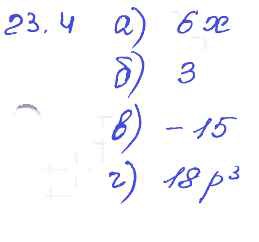 23.4 а) 6x
б) 3
в) -15
г) 18p³